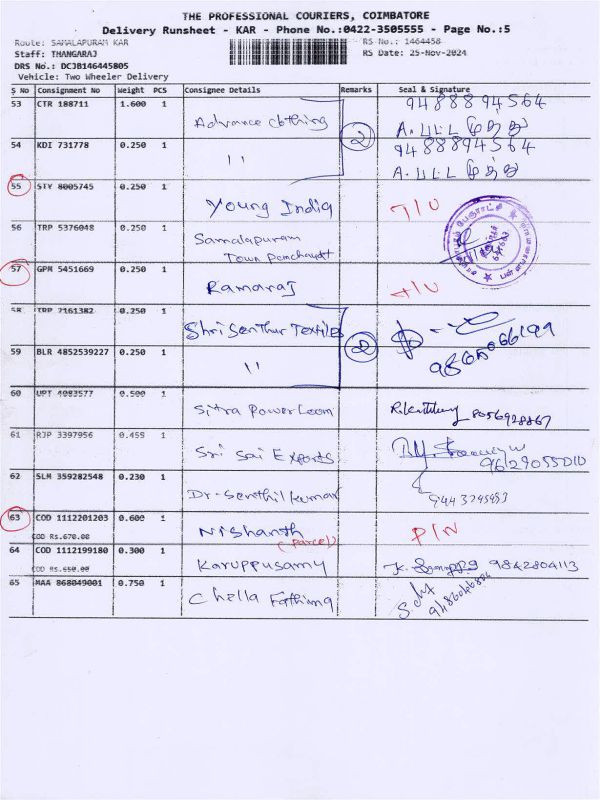 THE PROFESSIONAL COURIERS, COIMBATORE
Delivery Runsheet - KAR - Phone No.:0422-3505555 - Page No.:5
Route: SAMALAPURAM KAR
RS No.: 1464458
Staff: THANGARAJ
RS Date: 25-Nov-2024
DRS No.: DCJB146445805
Vehicle: Two Wheeler Delivery
S No Consignment No Weight PCS Consignee Details Remarks Seal & Signature
53 CTR 188711 1.600 1 Advance clothing 9488894564
A. பட்டமுத்து
2
54 KDI 731778 0.250 1 " 9488894564
A. பட்டமுத்து
55 STY 8005745 0.250 1 Young India T/U
56 TRP 5376048 0.250 1 Samalapuram
Town Panchayat
57 GPM 5451669 0.250 1 Ramaraj
58 TRP 7161382 0.250 1 Shri Senthur Textiles
2
59 BLR 4852539227 0.250 1 "
60 UPT 4083577 0.500 1 Sitra Power Loom 8056928867
61 RJP 3397956 0.455 1 Sri Sai Exports
62 SLM 359282548 0.230 1 Dr. Senthil kumar
63 COD 1112201203 0.600 1 Nishanth P/N
COD Rs.670.00 (Parcel)
64 COD 1112199180 0.300 1 Karuppusamy 9842804113
COD Rs.650.00
65 MAA 868049001 0.750 1 Chella Fathima